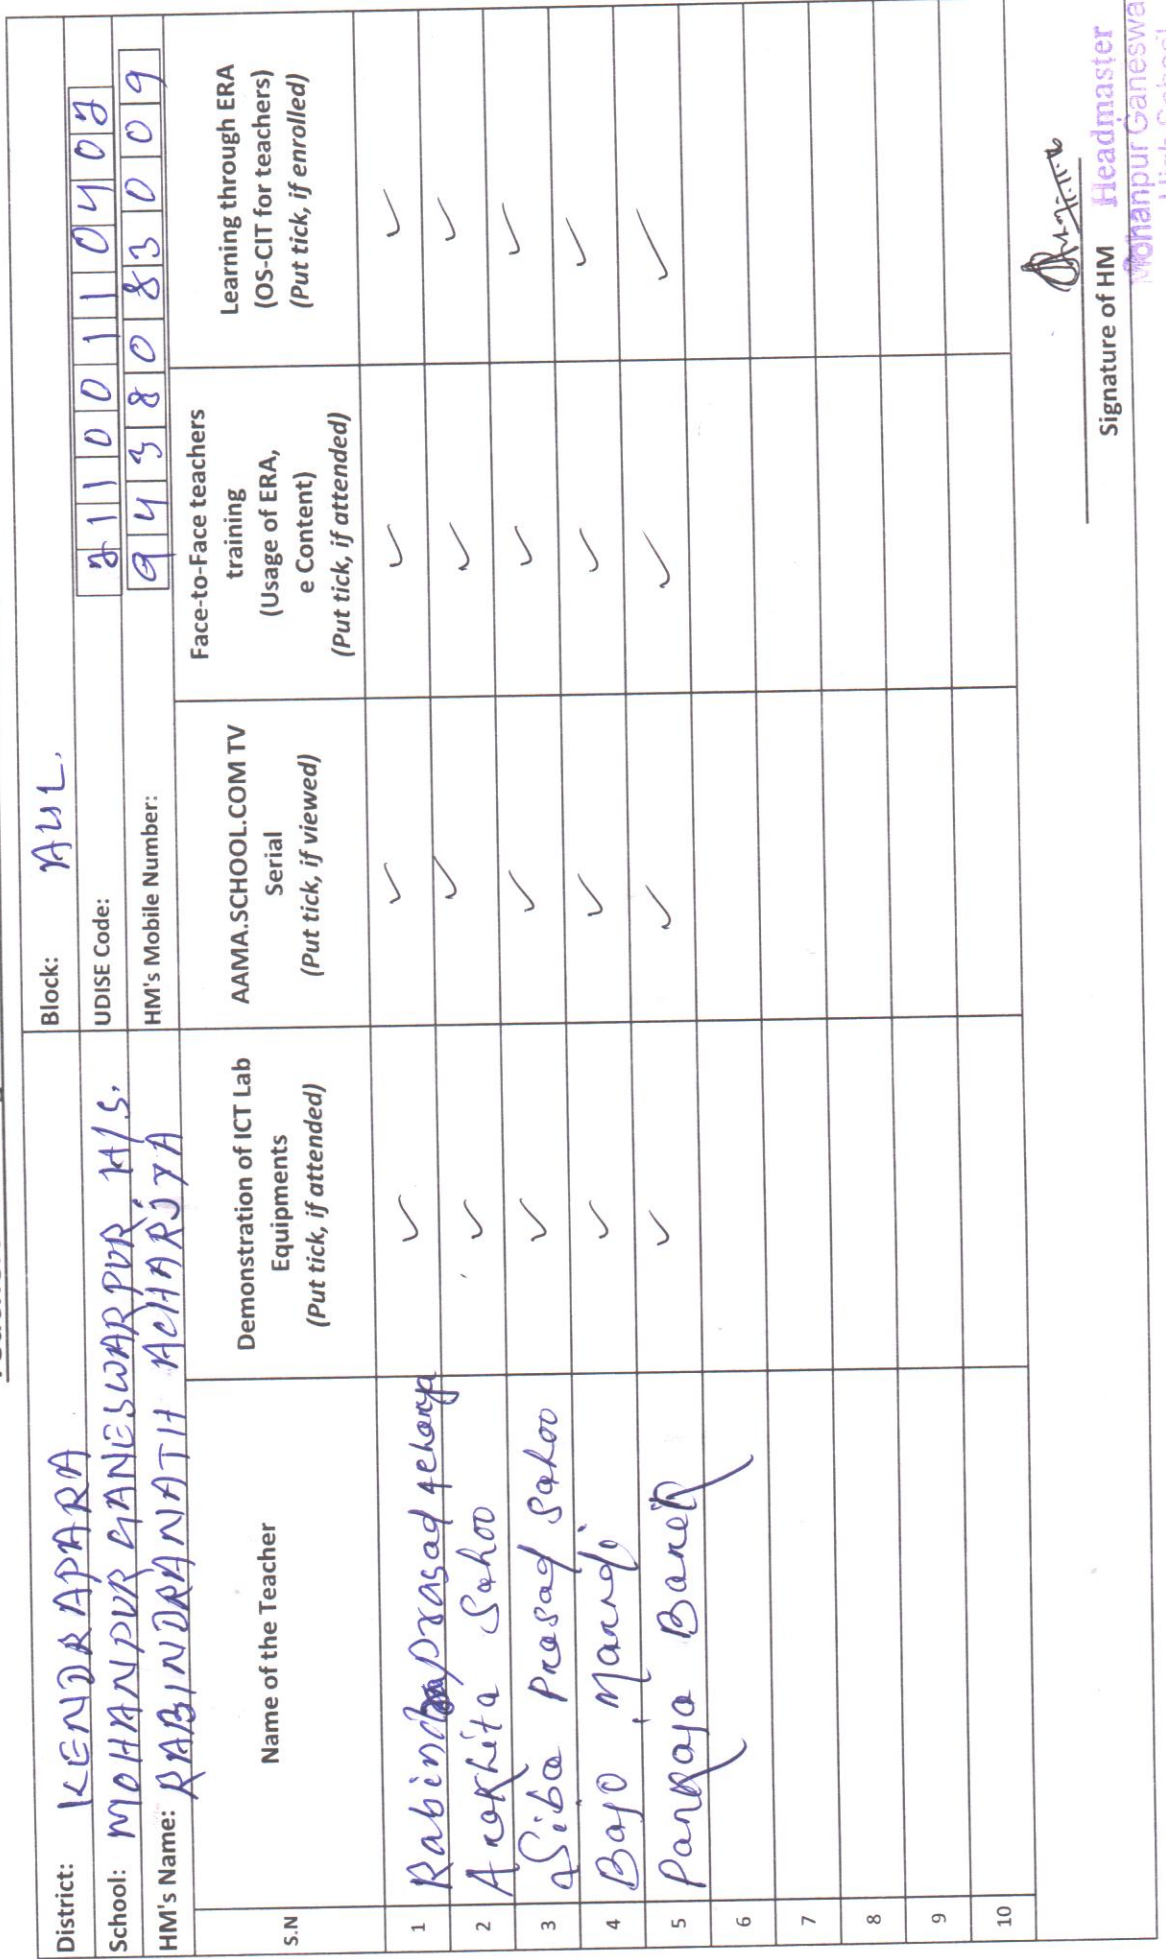 District: KENDRAPARA Block: AUL.
School: MOHANPUR GANESWARPUR H/S. UDISE Code: 21100110402
HM's Name: RABINDRANATH ACHARJYA HM's Mobile Number: 9438083009
S.N Name of the Teacher Demonstration of ICT Lab Equipments (Put tick, if attended) AAMA.SCHOOL.COM TV Serial (Put tick, if viewed) Face-to-Face teachers training (Usage of ERA, e Content) (Put tick, if attended) Learning through ERA (OS-CIT for teachers) (Put tick, if enrolled)
1 Rabindraprasad Acharya ✓ ✓ ✓ ✓
2 Arakhita Sahoo ✓ ✓ ✓ ✓
3 Siba Prasad Sahoo ✓ ✓ ✓ ✓
4 Bajo Marndi ✓ ✓ ✓ ✓
5 Pankaja Barik ✓ ✓ ✓ ✓
6
7
8
9
10
Signature of HM Headmaster
Mohanpur Ganeswa